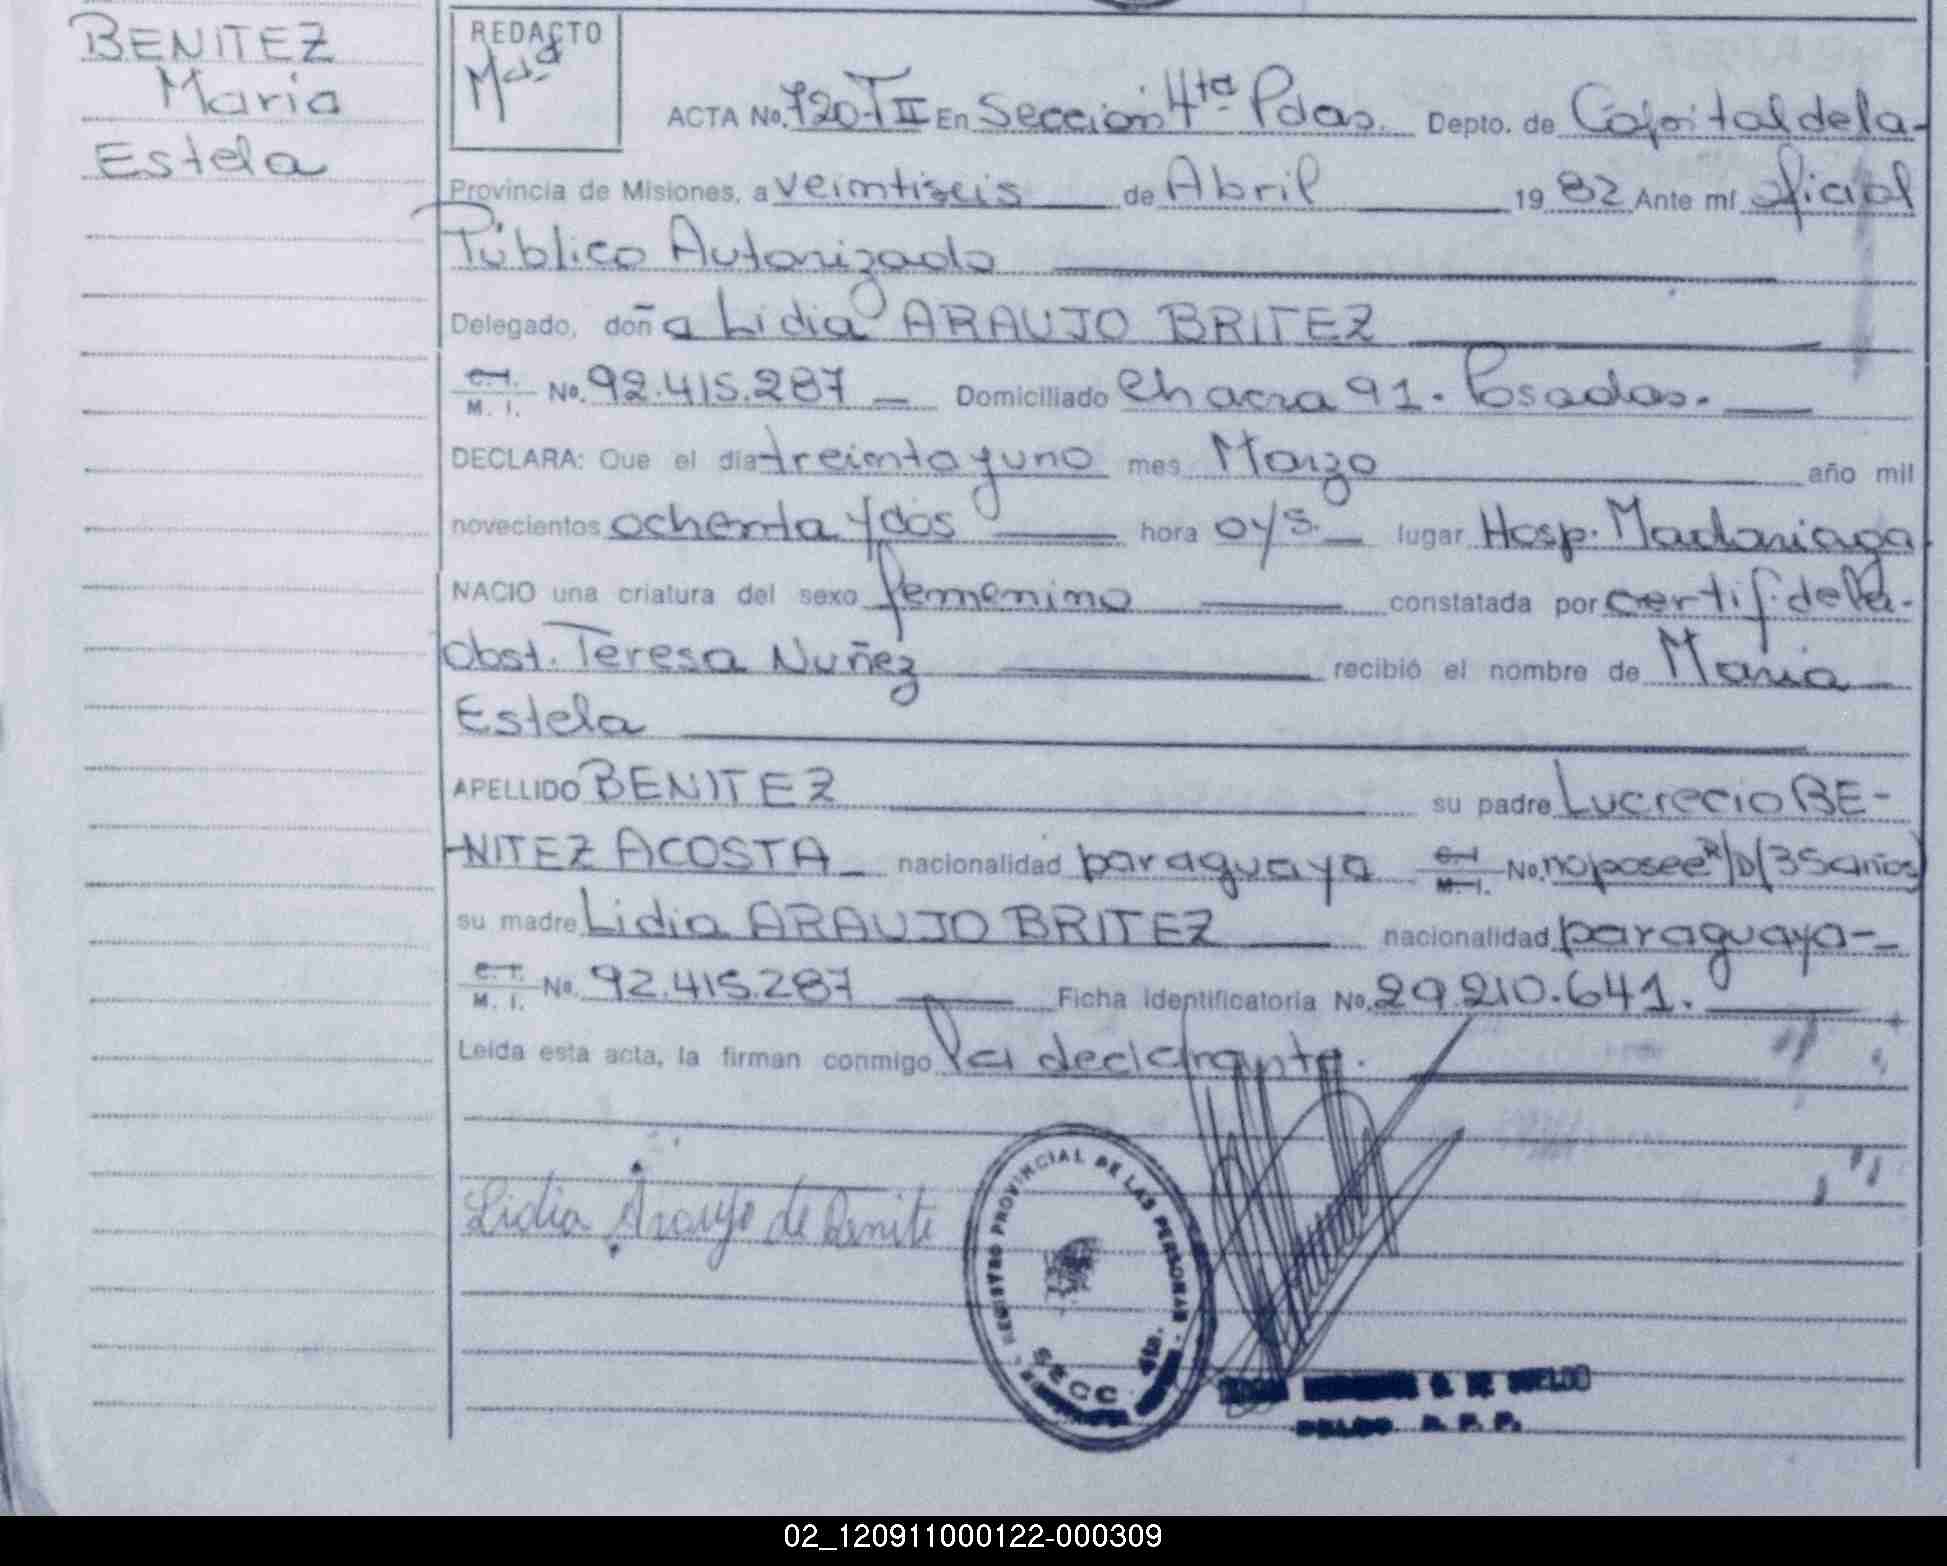 BENITEZ
Maria
Estela
REDACTO
ACTA No. 720-T II En Sección 4ta Pdas. Depto. de Capital de la-
Provincia de Misiones, a veintiseis de Abril 1982 Ante mí oficial
Público Autorizado
Delegado, doña Lidia ARAUJO BRITEZ
C.I. M.I. No. 92.415.287 Domiciliado Chacra 91. Posadas.
DECLARA: Que el día treinta y uno mes Marzo año mil
novecientos ochenta y dos hora 0 y 5. lugar Hosp. Madariaga
NACIO una criatura del sexo femenino constatada por certif. de la-
Obst. Teresa Nuñez recibió el nombre de Maria
Estela
APELLIDO BENITEZ su padre Lucrecio BE-
-NITEZ ACOSTA nacionalidad paraguaya C.I. M.I. No. no posee R/D(35 años)
su madre Lidia ARAUJO BRITEZ nacionalidad paraguaya-
C.I. M.I. No. 92.415.287 Ficha Identificatoria No. 29.210.641.
Leída esta acta, la firman conmigo la declarante.
Lidia Araujo de Benite
REGISTRO PROVINCIAL DE LAS PERSONAS - SECC. 4ta.
02_120911000122-000309